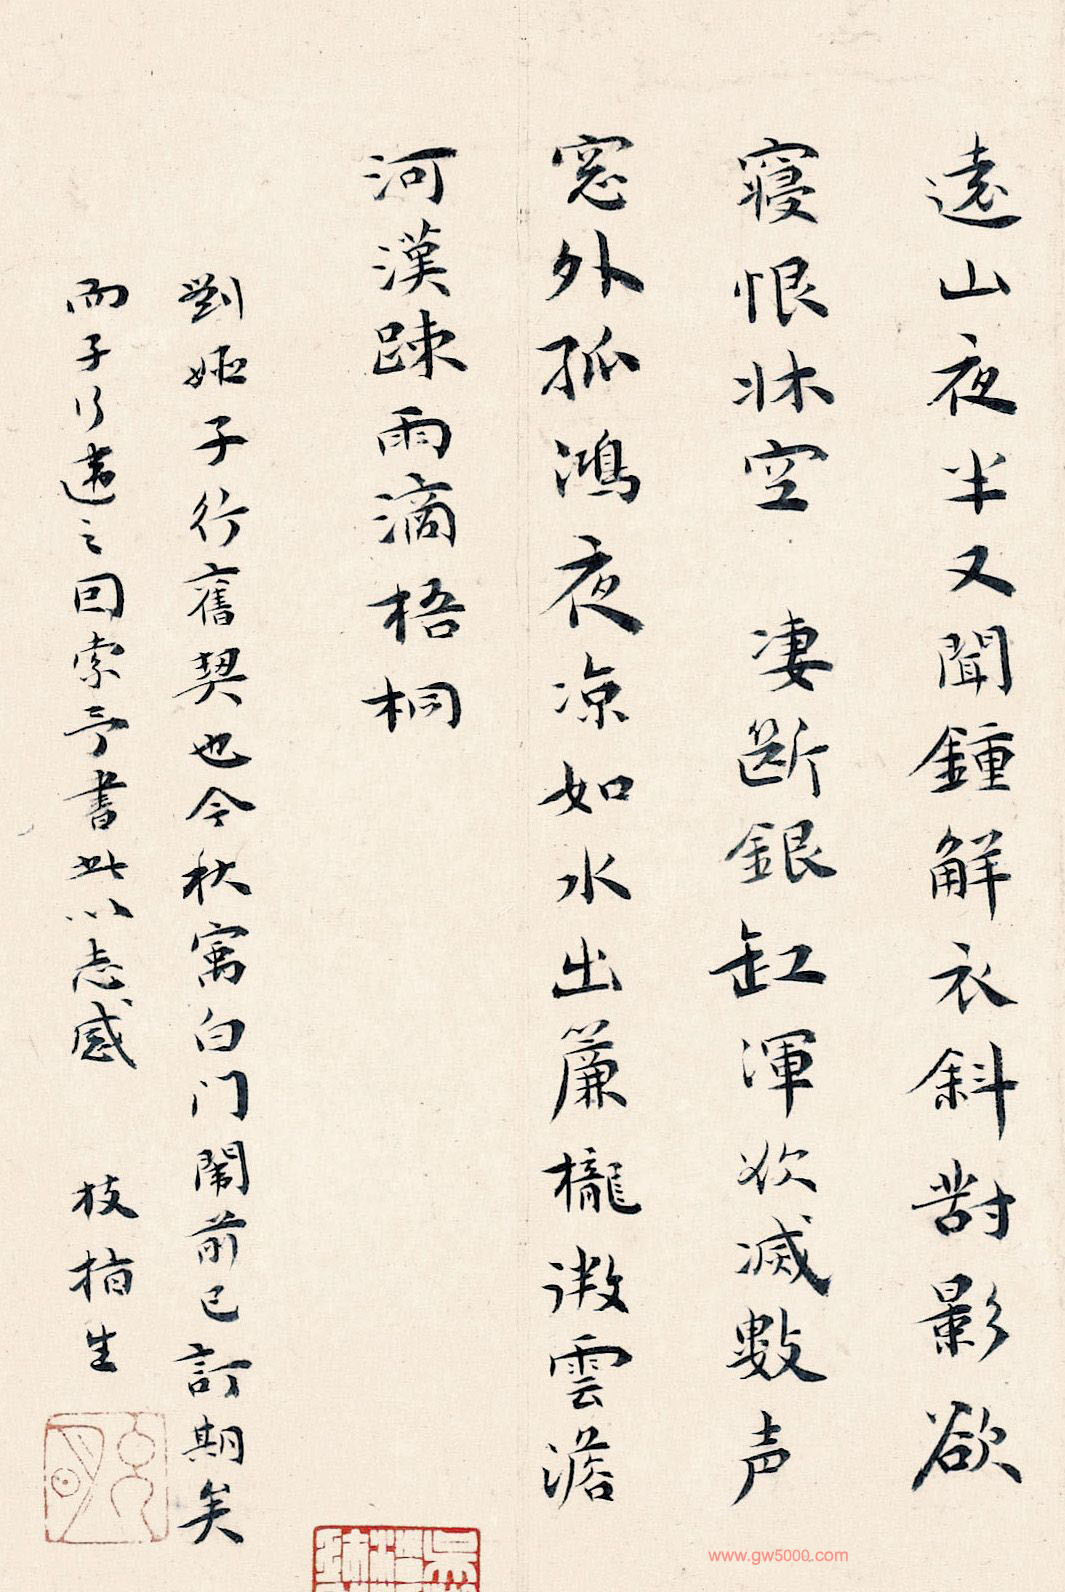 遠山夜半又聞鍾解衣斜對影欲
寢恨牀空　淒斷銀缸渾欲滅數声
窓外孤鴻夜涼如水出簾櫳微雲澹
河漢踈雨滴梧桐
劉姬子行舊契也今秋寓白门鬧前已訂期矣
而子行違之回索予書此以志感
枝指生
www.gw5000.com